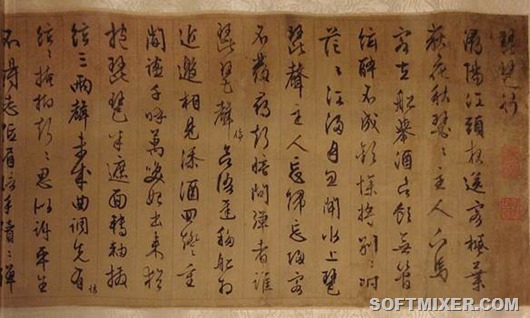 琵琶行
潯陽江頭夜送客楓葉
荻花秋瑟〻主人下馬
客在船舉酒欲飲無管
絃醉不成歡慘將別〻時
茫〻江浸月忽聞水上琵
琶聲主人忘歸客
不發尋聲暗問彈者誰
琵琶聲停欲語遲移船相
近邀相見添酒回燈重
開讌千呼萬喚始出來猶
抱琵琶半遮面轉軸撥
絃三兩聲未成曲調先有情
絃〻掩抑聲〻思似訴平生
不得志低眉信手續〻彈
SOFTMIXER.COM